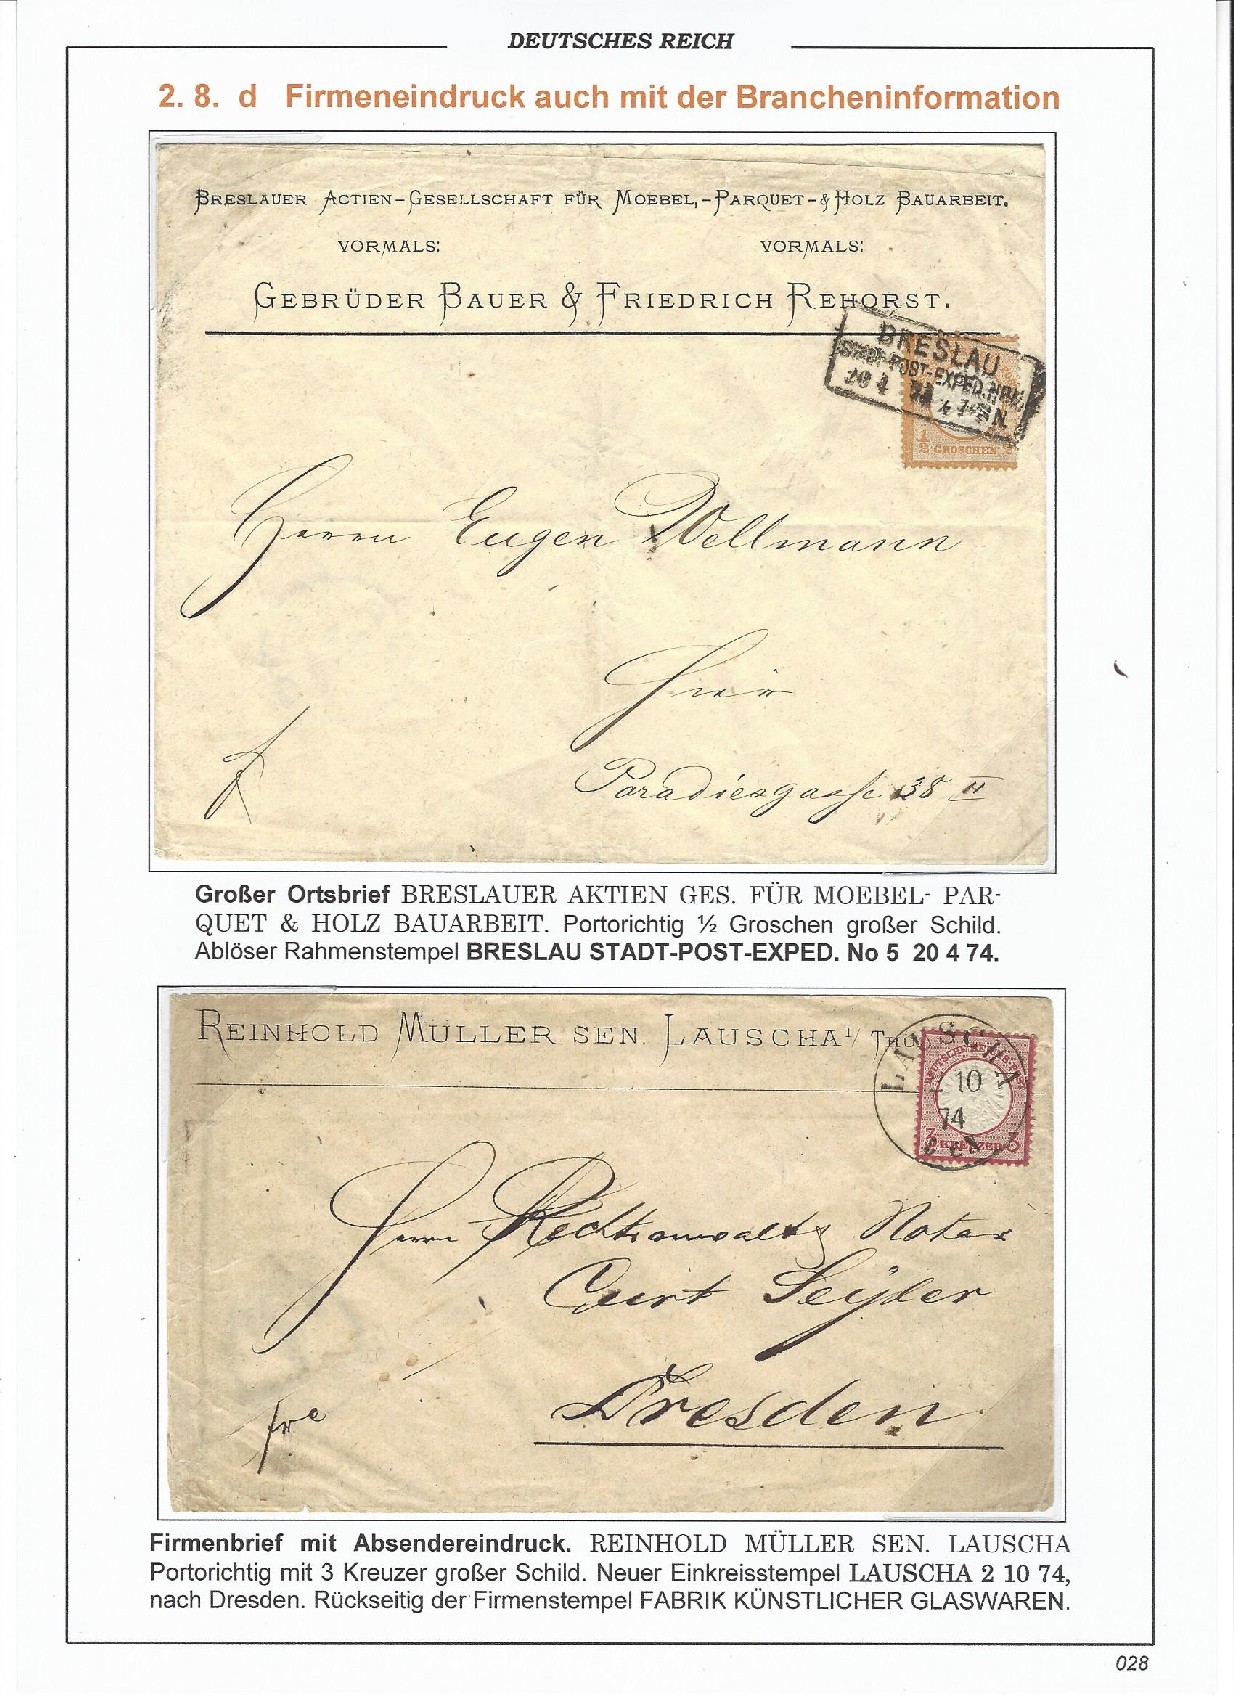 DEUTSCHES REICH
2. 8. d Firmeneindruck auch mit der Brancheninformation
BRESLAUER ACTIEN-GESELLSCHAFT FÜR MOEBEL,-PARQUET-& HOLZ BAUARBEIT.
VORMALS: VORMALS:
GEBRÜDER BAUER & FRIEDRICH REHORST.
BRESLAU
STADT-POST-EXPED.
20 4 74
1/2 GROSCHEN
Herrn Eugen Wellmann
Hier
Paradiesgasse 38 II
Großer Ortsbrief BRESLAUER AKTIEN GES. FÜR MOEBEL- PAR-
QUET & HOLZ BAUARBEIT. Portorichtig ½ Groschen großer Schild.
Ablöser Rahmenstempel BRESLAU STADT-POST-EXPED. No 5 20 4 74.
REINHOLD MÜLLER SEN. LAUSCHA I/ THÜ
LAUSCHA
10
74
3 KREUZER 3
Herrn Rechtsanwalt & Notar
Curt Seyder
Dresden
frc
Firmenbrief mit Absendereindruck. REINHOLD MÜLLER SEN. LAUSCHA
Portorichtig mit 3 Kreuzer großer Schild. Neuer Einkreisstempel LAUSCHA 2 10 74,
nach Dresden. Rückseitig der Firmenstempel FABRIK KÜNSTLICHER GLASWAREN.
028